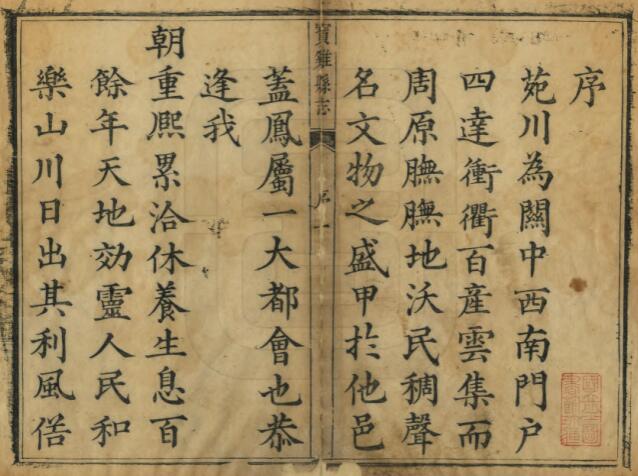 序
苑川為關中西南門户
四達衝衢百産雲集而
周原膴膴地沃民稠聲
名文物之盛甲扵他邑
寳雞縣志
序
一
蓋鳳屬一大都會也恭
逢我
朝重熈累洽休養生息百
餘年天地効靈人民和
樂山川日出其利風俗